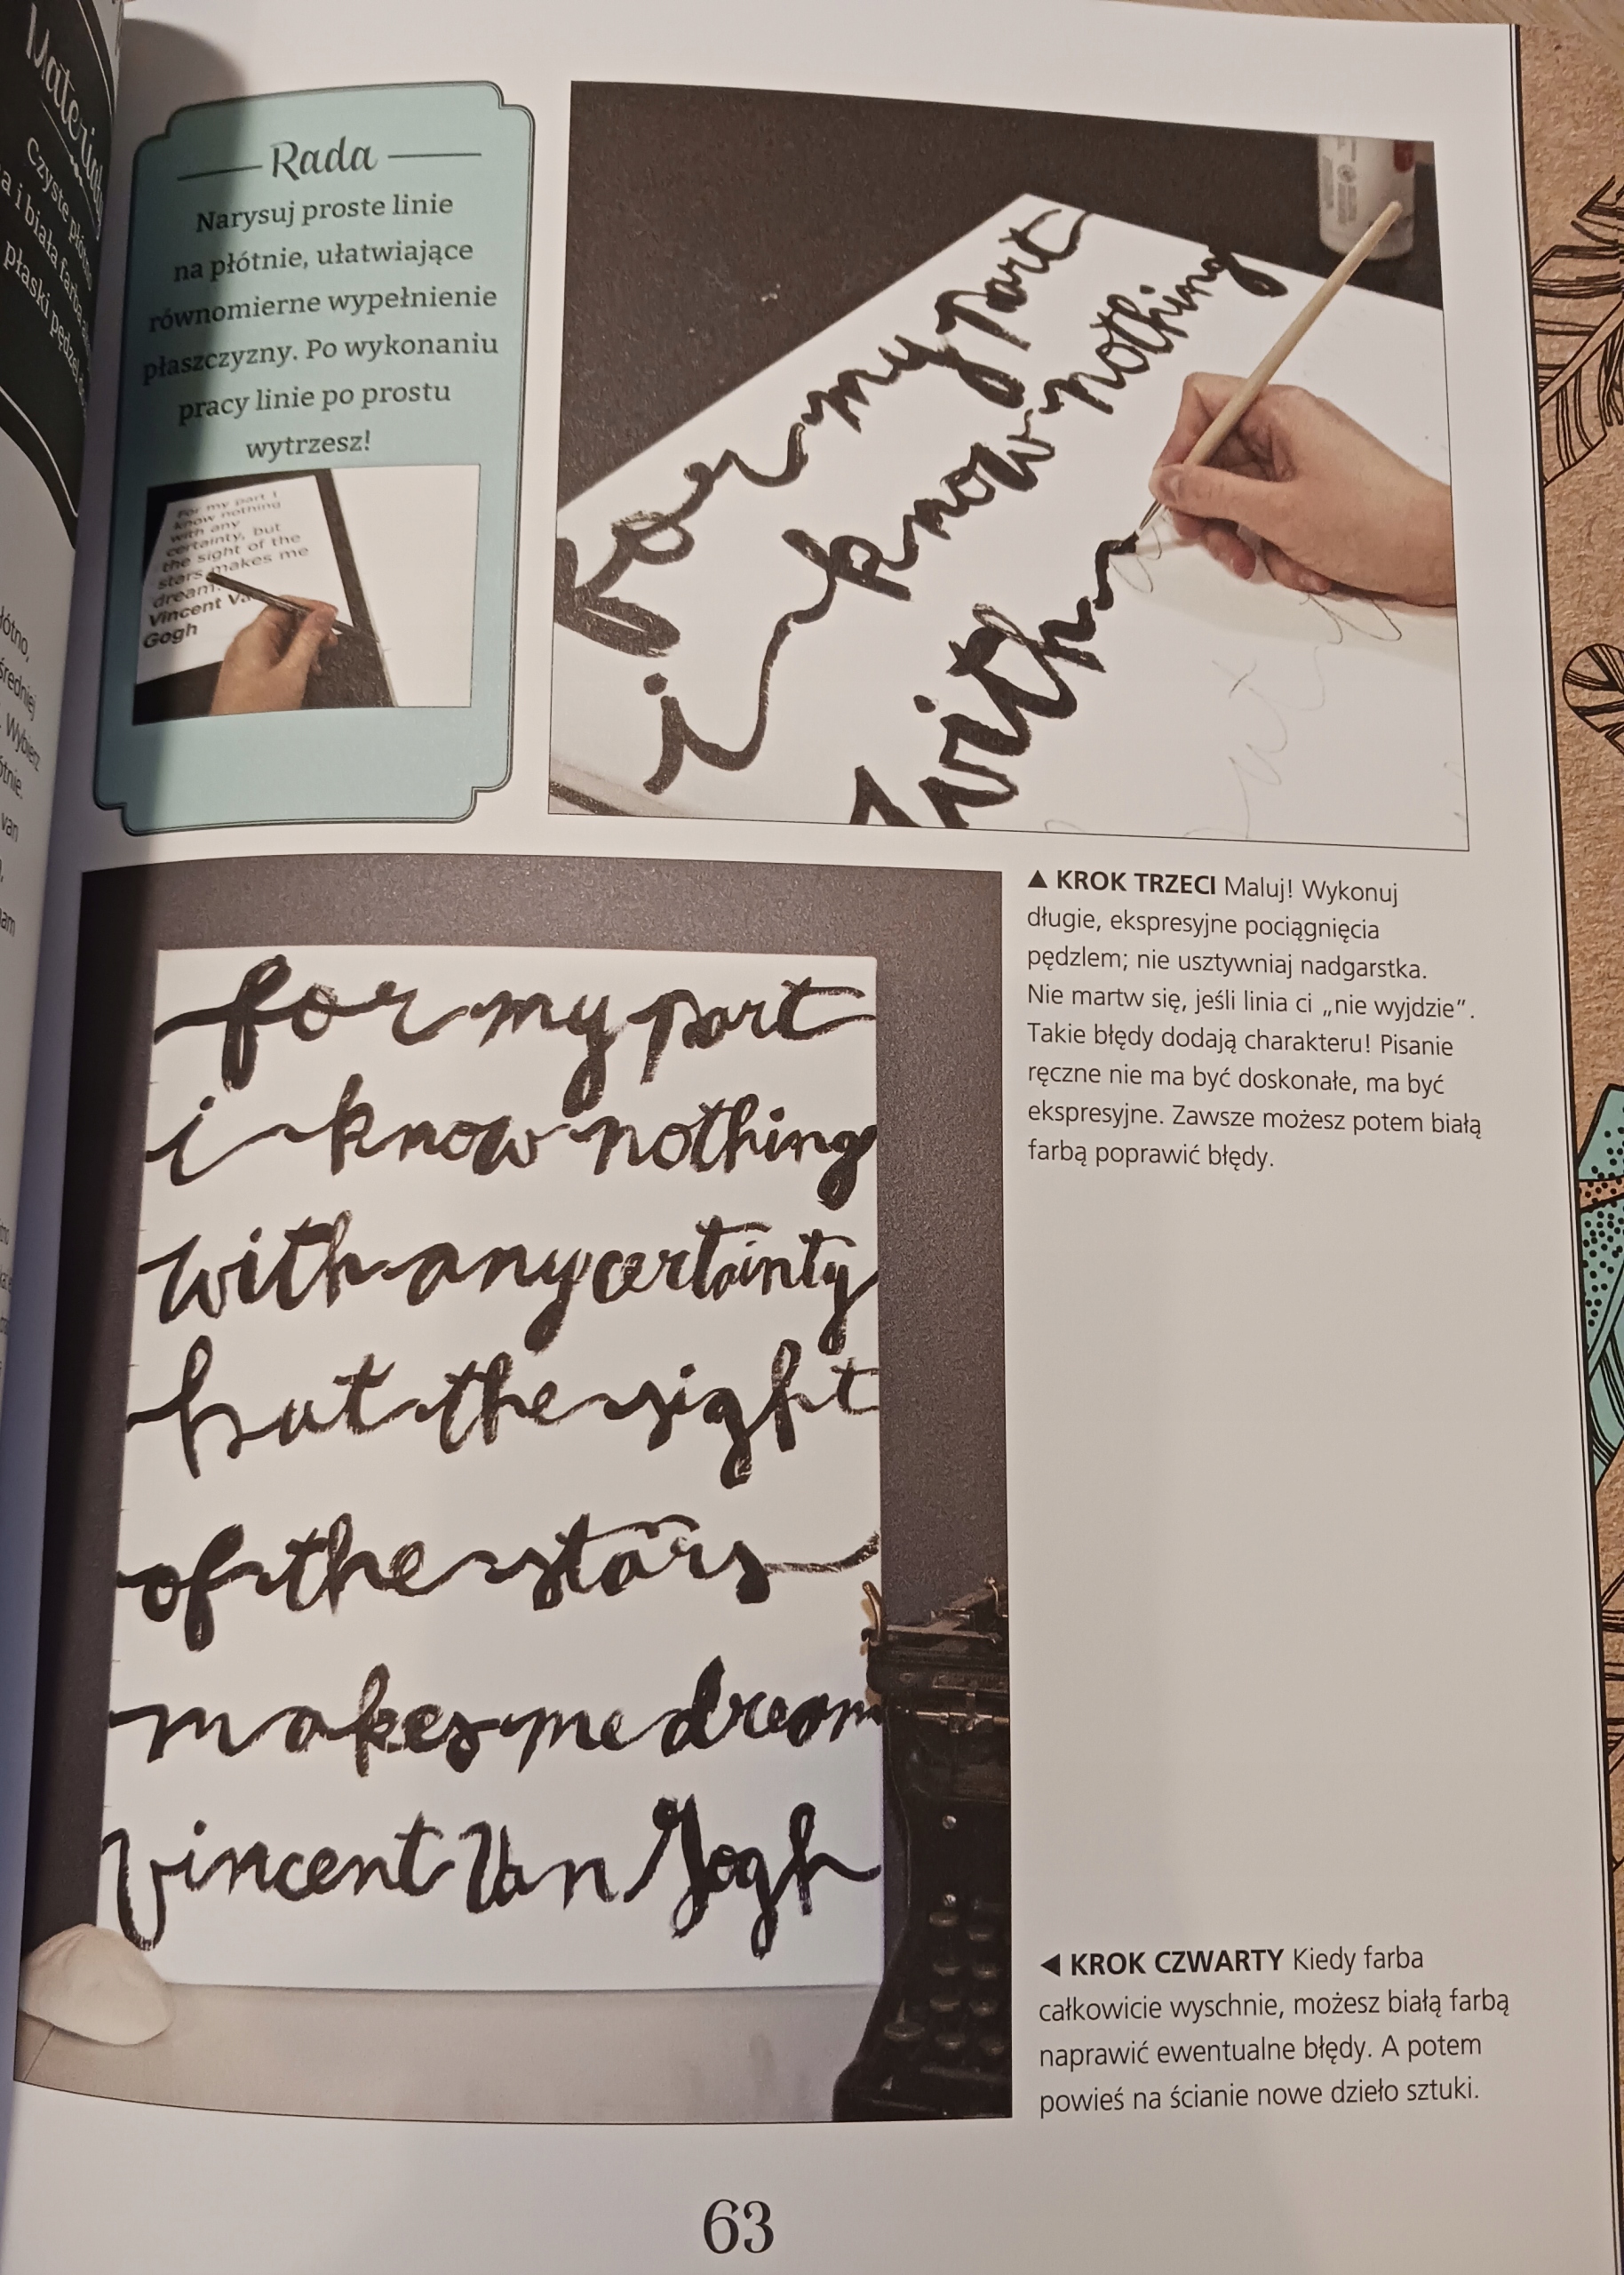 Materiały
Czyste płótno
a i biała farba
płaski pędzel
łótno,
średniej
Wybierz
ótnie.
van
Rada
Narysuj proste linie
na płótnie, ułatwiające
równomierne wypełnienie
płaszczyzny. Po wykonaniu
pracy linie po prostu
wytrzesz!
For my part I
know nothing
with any
certainty, but
the sight of the
stars makes me
dream.
Vincent Va
Gogh
for my part
i know nothing
with
▲ KROK TRZECI Maluj! Wykonuj
długie, ekspresyjne pociągnięcia
pędzlem; nie usztywniaj nadgarstka.
Nie martw się, jeśli linia ci „nie wyjdzie”.
Takie błędy dodają charakteru! Pisanie
ręczne nie ma być doskonałe, ma być
ekspresyjne. Zawsze możesz potem białą
farbą poprawić błędy.
for my part
i know nothing
with any certainty
but the sight
of the stars
makes me dream
Vincent Van Gogh
◄ KROK CZWARTY Kiedy farba
całkowicie wyschnie, możesz białą farbą
naprawić ewentualne błędy. A potem
powieś na ścianie nowe dzieło sztuki.
63